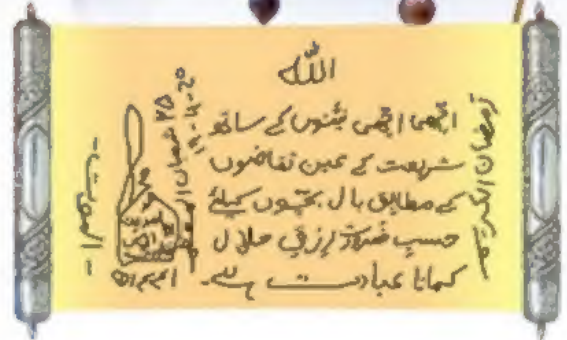 اللہ
اچھی اچھی نیّتوں کے ساتھ
شریعت کے عین تقاضوں
کے مطابق بال بچّوں کیلئے
حسبِ ضرورت رزقِ حلال
کمانا عبادت ہے۔
رمضان الکریم
۲۵ شعبان